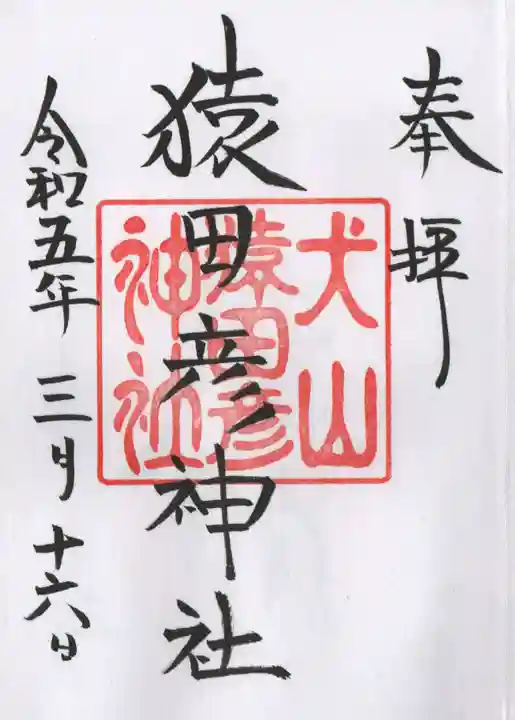 奉拝
猿田彦神社
犬山
猿田彦
神社
令和五年三月十六日